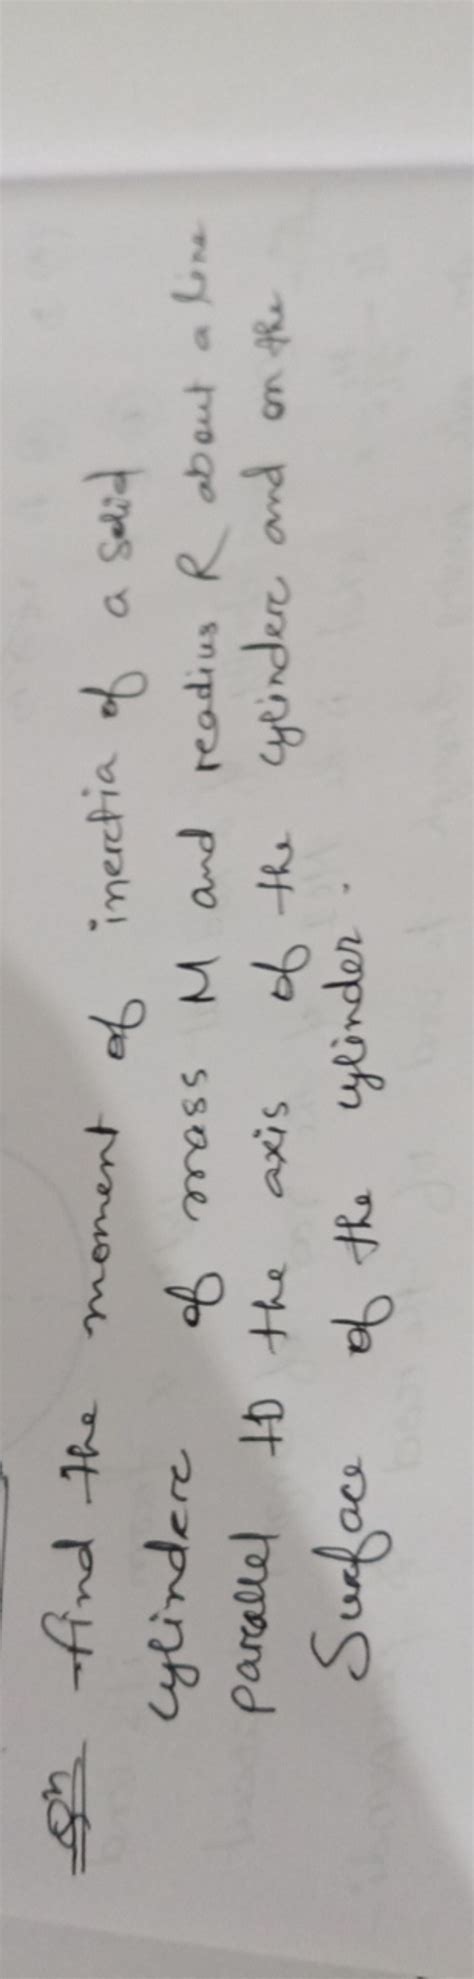 Qn find the moment of inerctia of a solid
cylinderc of mass M and readius R about a line
parcallel to the axis of the cylinderc and on the
Surcface of the cylinder.